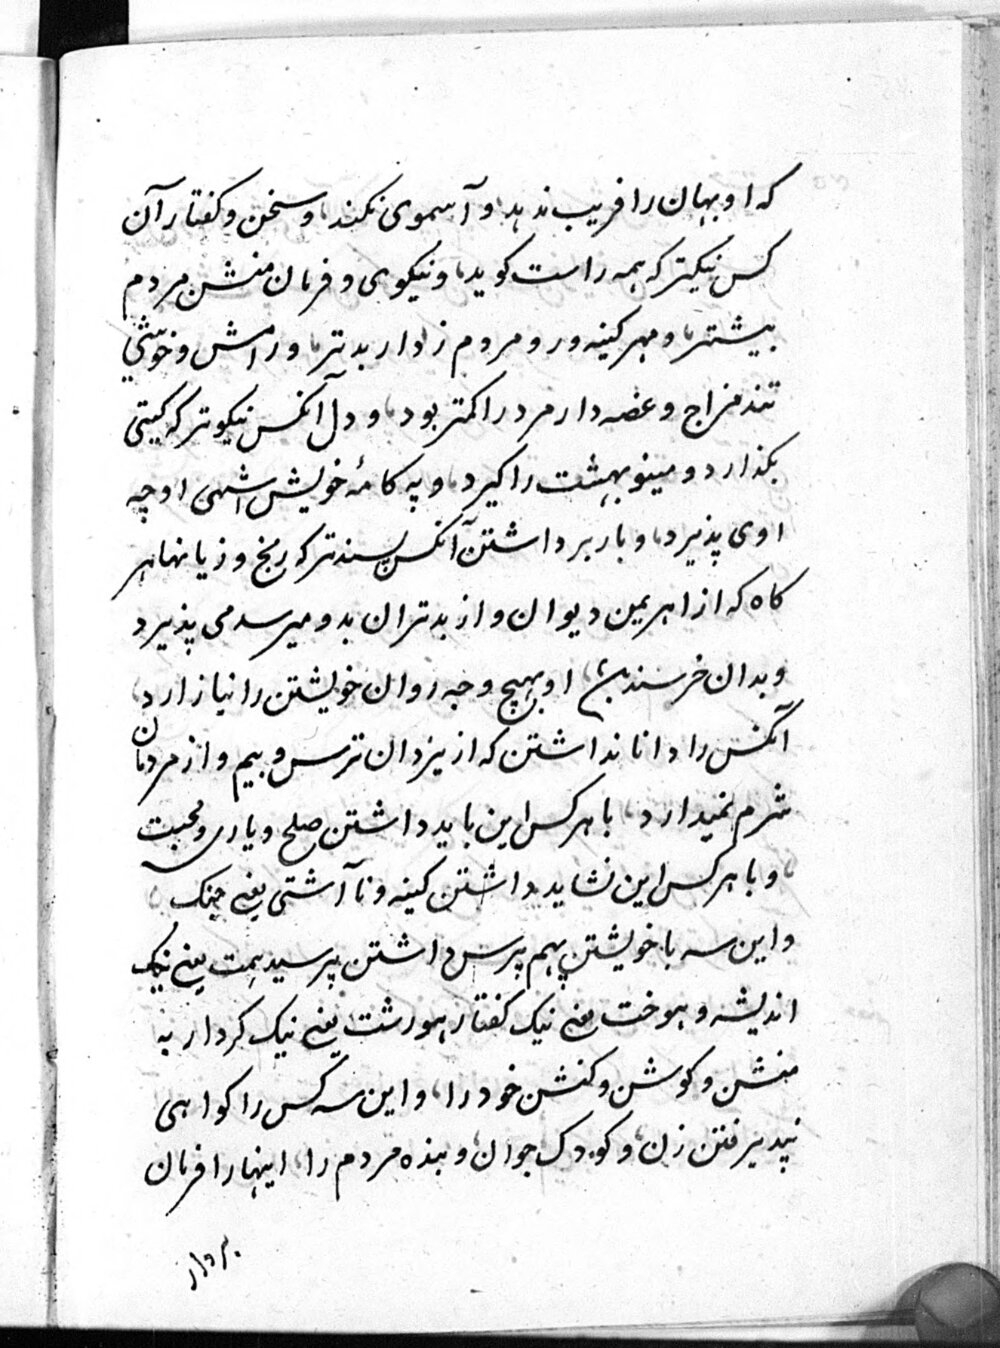 که او بهان را فریب ندهد و آسموی نکند و سخن و کفتار آن
کس نیکتر که همه راست کوید و نیکوی و فرمان منشن مردم
بیشتر و مهر کینه ور و مردم زدار بدتر و رامش و خویشی
تند مزاج و غصه دار مرد را کمتر بود و دل آنکس نیکوتر که کیتی
بکذارد و مینو بهشت را کیرد و په کامهٔ خویش اشهی او چه
اوی پذیرد و بار برداشتن آنکس پسندتر که رنج و زیانها هر
کاه که از اهریمن دیوان و از بدتران بدو میرسد می پذیرد
و بدان خرسند او بهیچ وجه روان خویشتن را نیازارد
آنکس را دانا نداشتن که از یزدان ترس و بیم و از مردمان
شرم نمیدارد با هر کس این باید داشتن صلح و یاری و محبت
و با هر کس این نشاید داشتن کینه و ناآشتی یعنی جنک
و این سه با خویشتن بهم پرس داشتن پرسید همت یعنی نیک
اندیشه و هوخت یعنی نیک کفتار هورشت یعنی نیک کردار به
منشن و کوشن و کنشن خود را و این سه کس را کواهی
نپدیرفتن زن و کودک جوان و بنده مردم را اینها را فرمان
بردار